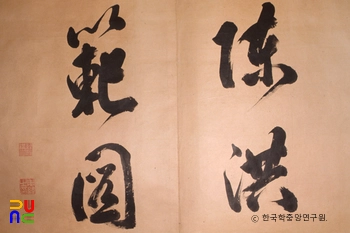 陳洪
範圖
ⓒ 한국학중앙연구원.